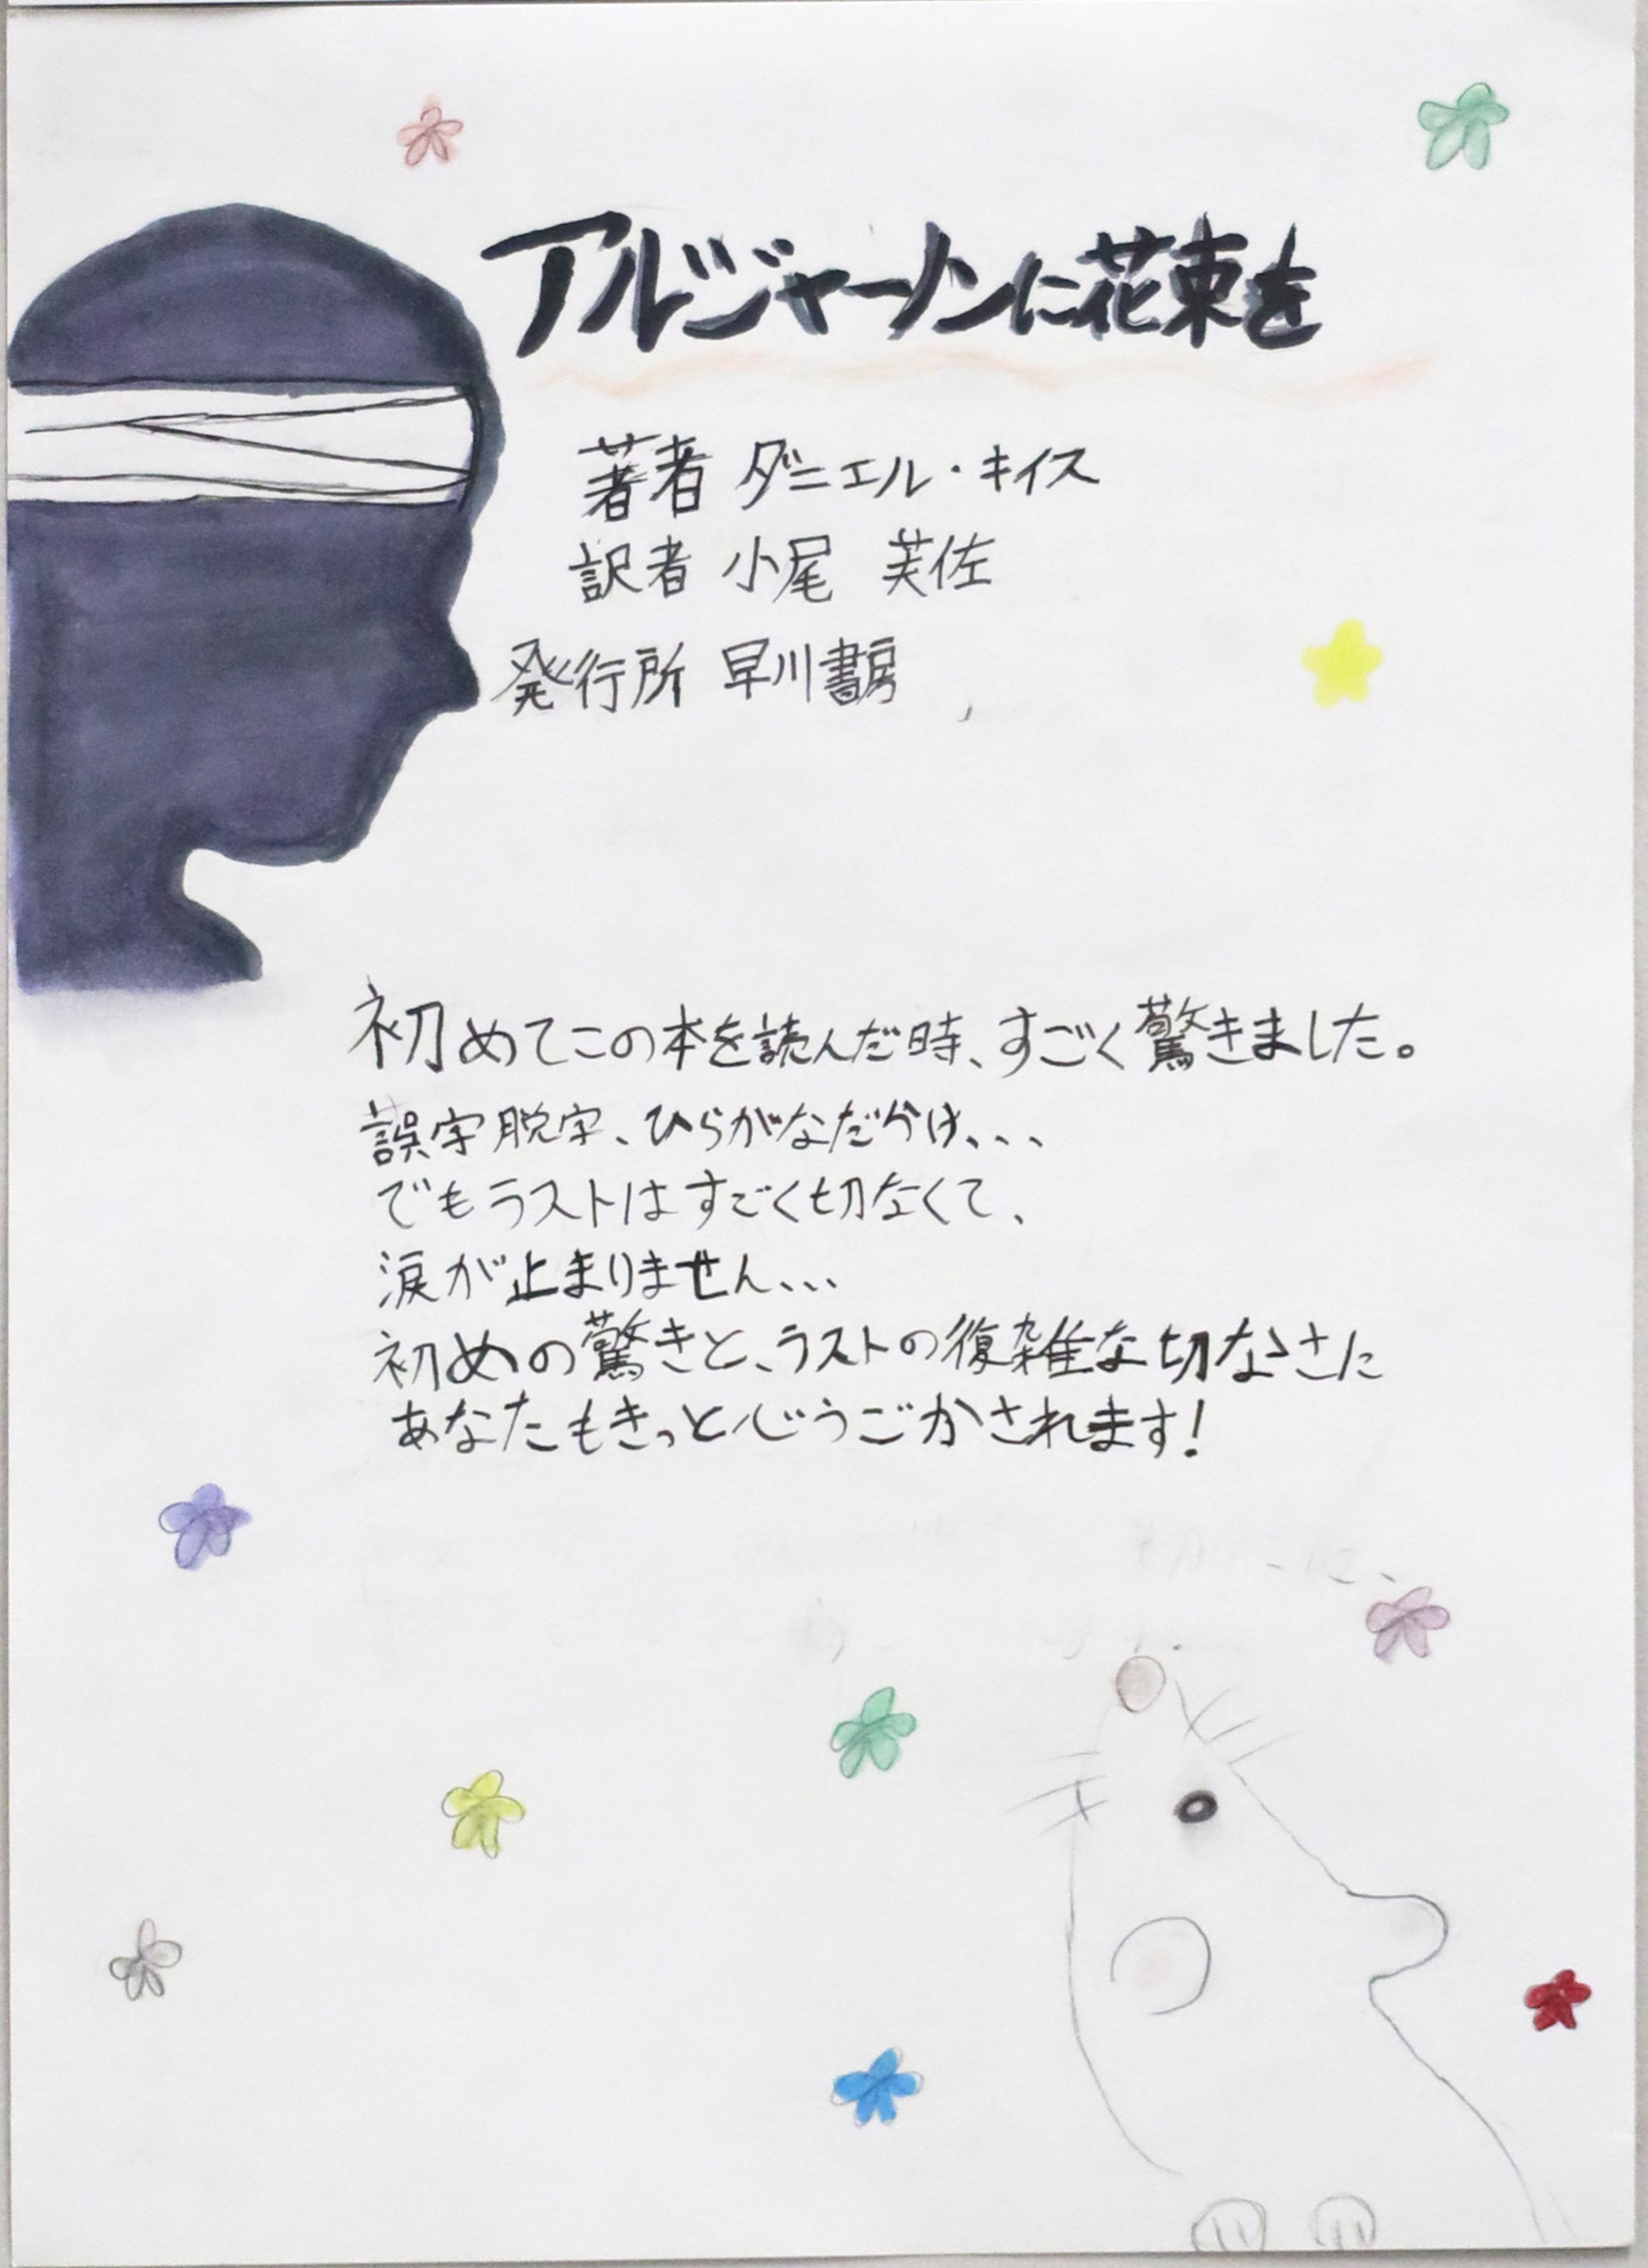 アルジャーノンに花束を
著者 ダニエル・キイス
訳者 小尾 芙佐
発行所 早川書房
初めてこの本を読んだ時、すごく驚きました。
誤字脱字、ひらがなだらけ、、、
でもラストはすごく切なくて、
涙が止まりません、、、
初めの驚きと、ラストの復雑な切なさに
あなたもきっと心うごかされます!